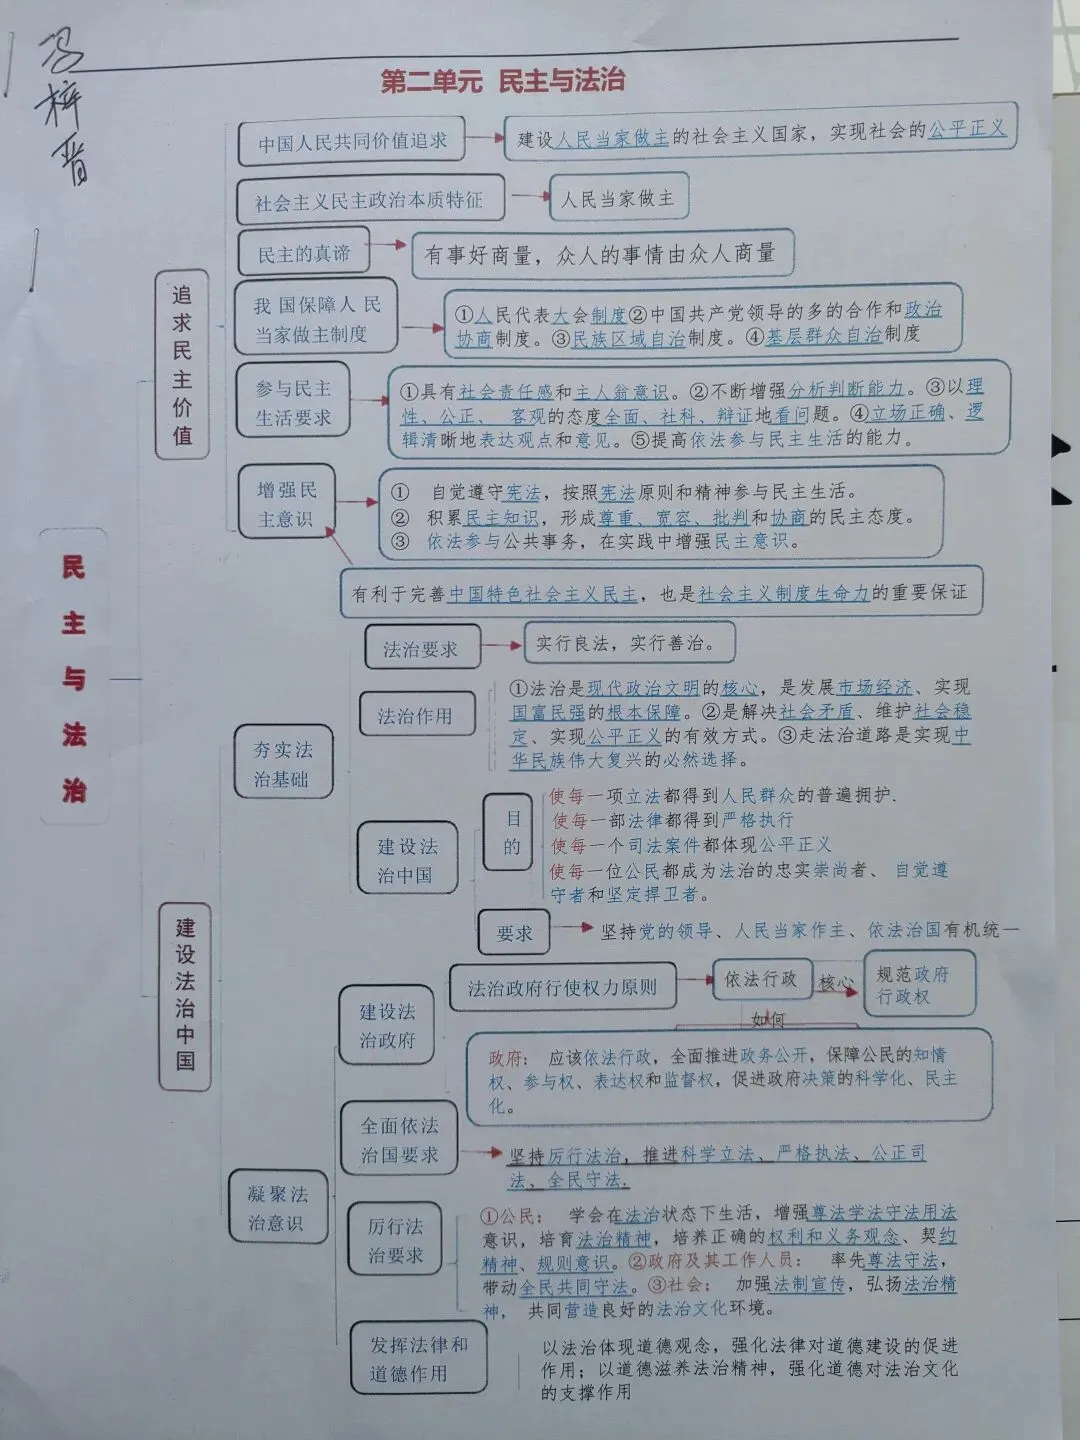 冯梓晋
第二单元 民主与法治
民主与法治
追求民主价值
中国人民共同价值追求
建设人民当家做主的社会主义国家，实现社会的公平正义
社会主义民主政治本质特征
人民当家做主
民主的真谛
有事好商量，众人的事情由众人商量
我国保障人民
当家做主制度
①人民代表大会制度②中国共产党领导的多的合作和政治
协商制度。③民族区域自治制度。④基层群众自治制度
参与民主
生活要求
①具有社会责任感和主人翁意识。②不断增强分析判断能力。③以理
性、公正、 客观的态度全面、社科、辩证地看问题。④立场正确、逻
辑清晰地表达观点和意见。⑤提高依法参与民主生活的能力。
增强民
主意识
① 自觉遵守宪法，按照宪法原则和精神参与民主生活。
② 积累民主知识，形成尊重、宽容、批判和协商的民主态度。
③ 依法参与公共事务，在实践中增强民主意识。
有利于完善中国特色社会主义民主，也是社会主义制度生命力的重要保证
建设法治中国
夯实法
治基础
法治要求
实行良法，实行善治。
法治作用
①法治是现代政治文明的核心，是发展市场经济、实现
国富民强的根本保障。②是解决社会矛盾、维护社会稳
定、实现公平正义的有效方式。③走法治道路是实现中
华民族伟大复兴的必然选择。
建设法
治中国
目的
使每一项立法都得到人民群众的普遍拥护.
使每一部法律都得到严格执行
使每一个司法案件都体现公平正义
使每一位公民都成为法治的忠实崇尚者、 自觉遵
守者和坚定捍卫者。
要求
坚持党的领导、人民当家作主、依法治国有机统一
凝聚法
治意识
建设法
治政府
法治政府行使权力原则
依法行政
核心
规范政府
行政权
如何
政府： 应该依法行政，全面推进政务公开，保障公民的知情
权、参与权、表达权和监督权，促进政府决策的科学化、民主
化。
全面依法
治国要求
坚持厉行法治，推进科学立法、严格执法、公正司
法、全民守法.
厉行法
治要求
①公民： 学会在法治状态下生活，增强尊法学法守法用法
意识，培育法治精神，培养正确的权利和义务观念、契约
精神、规则意识。②政府及其工作人员： 率先尊法守法，
带动全民共同守法。③社会： 加强法制宣传，弘扬法治精
神， 共同营造良好的法治文化环境。
发挥法律和
道德作用
以法治体现道德观念，强化法律对道德建设的促进
作用；以道德滋养法治精神，强化道德对法治文化
的支撑作用